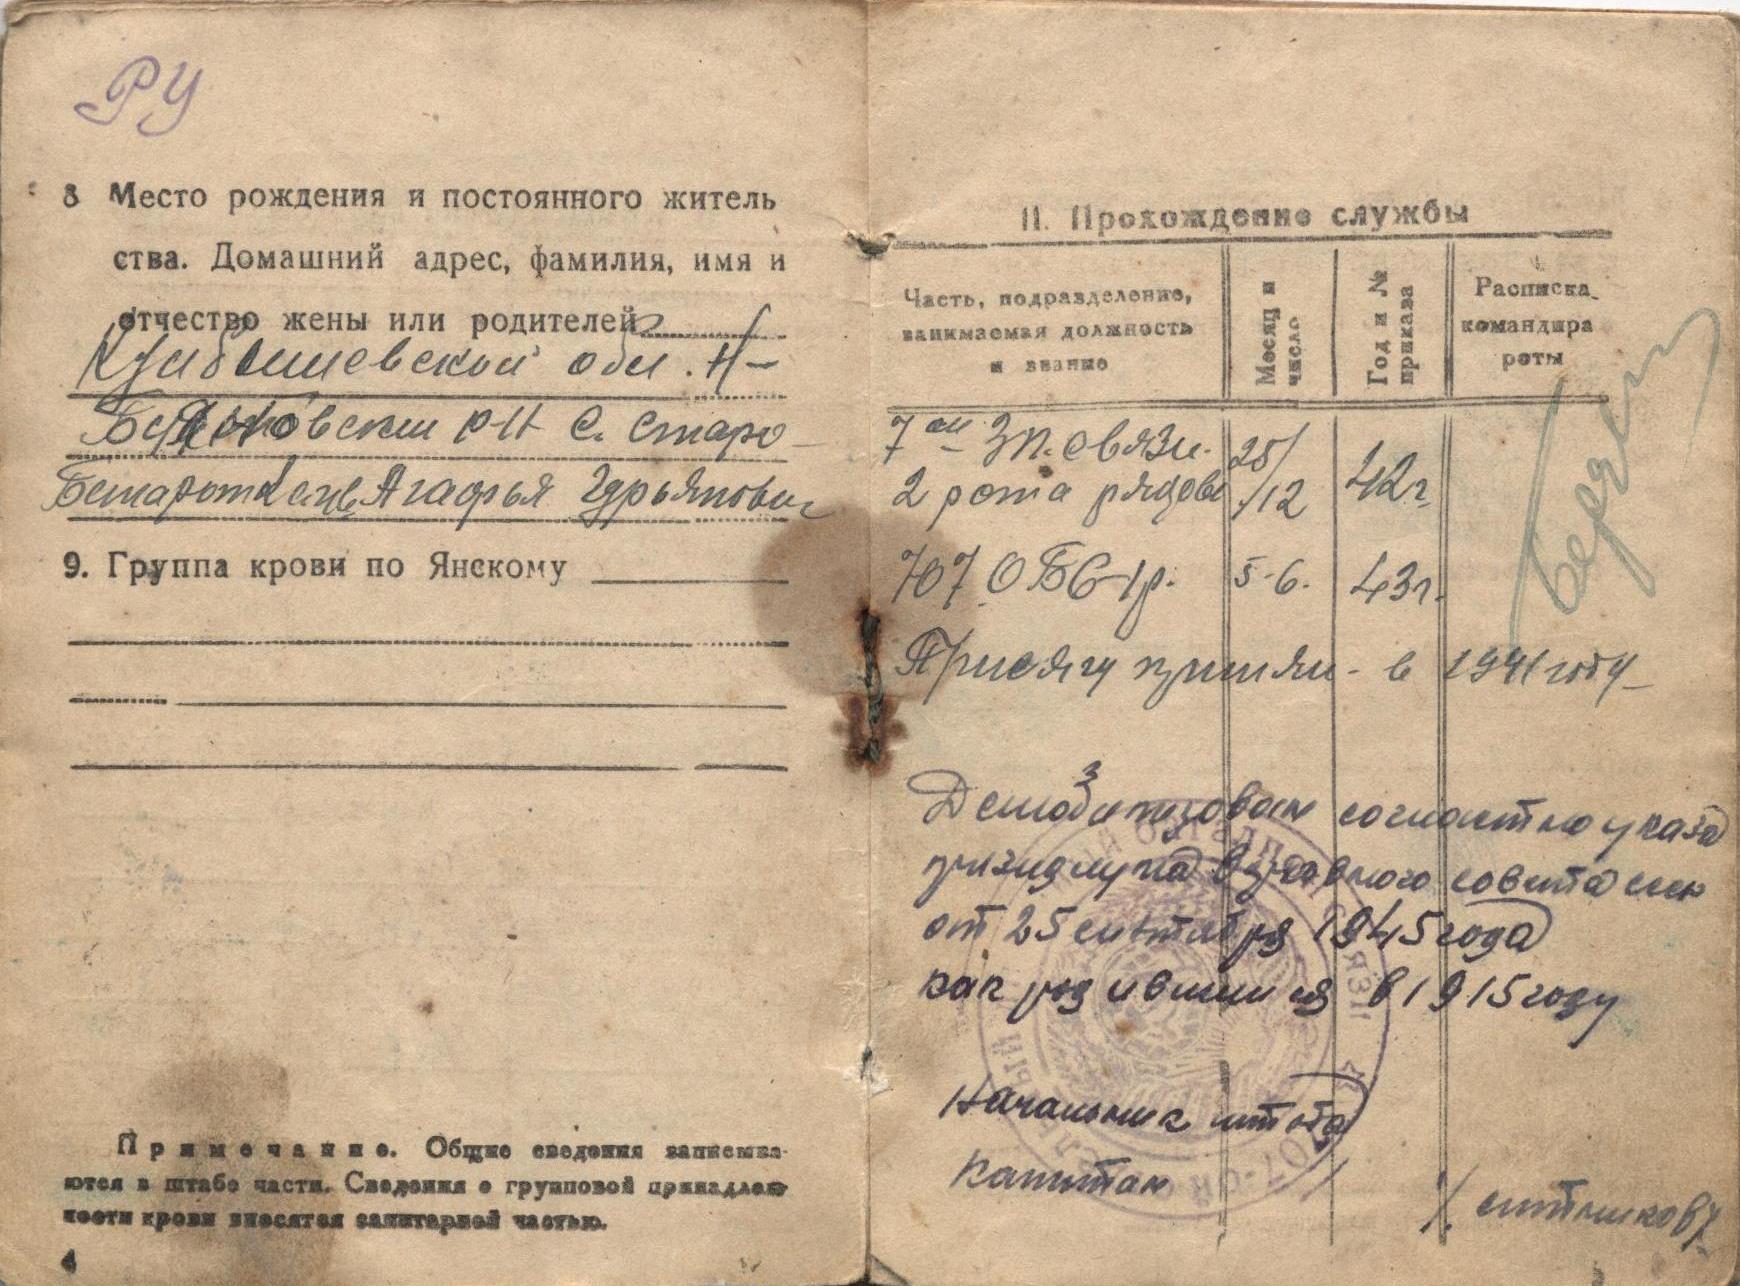 РУ
8 Место рождения и постоянного житель
ства. Домашний адрес, фамилия, имя и
отчество жены или родителей
Куйбышевской обл. Н-
р-н с. Старо-
Агафья
9. Группа крови по Янскому
Примечание. Общие сведения записыва-
ются в штабе части. Сведения о групповой принадлеж
ности крови вносятся санитарной частью.
4
II. Прохождение службы
Часть, подразделение,
занимаемая должность
и звание
Месяц и
число
Год и №
приказа
Расписка
командира
роты
7 ой Зп. связи.
2 рота рядов 25/12 42г
707 ОБС-1р. 5-6. 43г.
Присягу принял - в 1941 году
Демобилизован согласно указа
президиума верховного совета ссср
от 25 сентября 1945 года
как родившийся в 1915 году
Начальник штаба
капитан / Ситников /